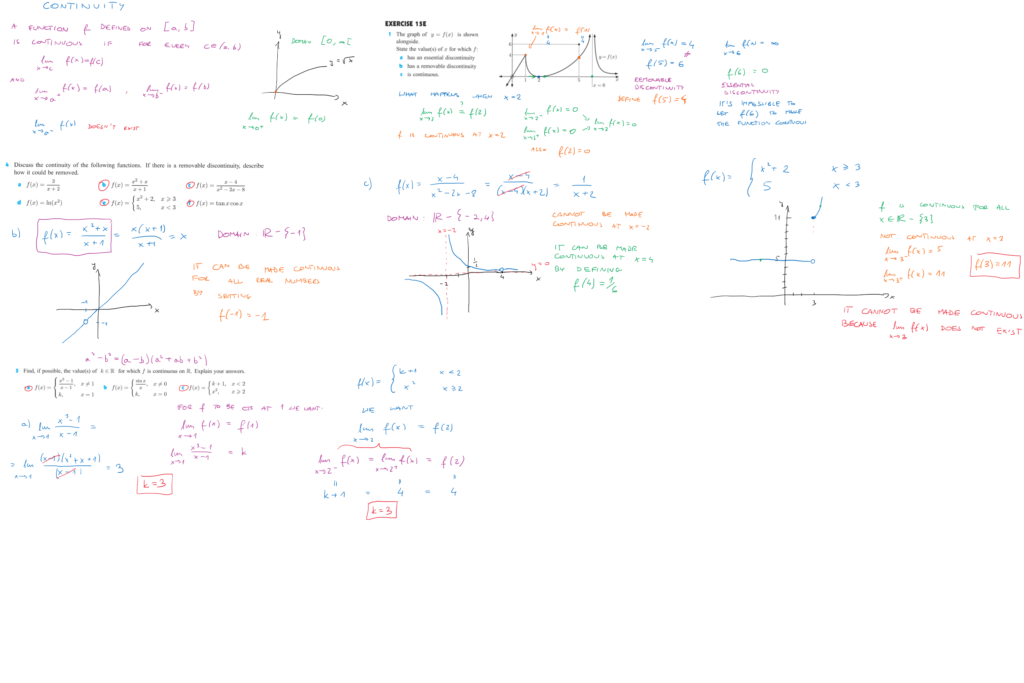 CONTINUITY
A FUNCTION f DEFINED ON [a, b]
IS CONTINUOUS IF FOR EVERY c∈(a, b)
lim x→c f(x)=f(c)
AND
lim x→a⁺ f(x) = f(a) , lim x→b⁻ f(x) = f(b)
lim x→a⁻ f(x) DOESN'T EXIST
y
DOMAIN [0, ∞[
y = √x
x
lim x→0⁺ f(x) = f(0)
EXERCISE 15E
1 The graph of y = f(x) is shown
alongside.
State the value(s) of x for which f:
a has an essential discontinuity
b has a removable discontinuity
c is continuous.
y = f(x)
x = 6
WHAT HAPPENS WHEN x=2
lim x→2 f(x) ?= f(2)
f IS CONTINUOUS AT x=2
lim x→2⁻ f(x) = 0
lim x→2⁺ f(x) = 0
lim x→2 f(x) = 0
ALSO f(2)=0
lim x→5 f(x) = 4
f(5) = 6
REMOVABLE
DISCONTINUITY
DEFINE f(5) = 4
lim x→6 f(x) = ∞
f(6) = 0
ESSENTIAL
DISCONTINUITY
IT'S IMPOSSIBLE TO
THE FUNCTION
4 Discuss the continuity of the following functions. If there is a removable discontinuity, describe
how it could be removed.
a f(x) = 3/(x+3) b f(x) = (x²+x)/(x+1) c f(x) = (x−4)/(x²−2x−8)
d f(x) = ln(x²) e f(x) = { x²+2, x ⩾ 3 5, x < 3 f f(x) = tan x cos x
b) f(x) = (x²+x)/(x+1) = x(x+1)/(x+1) = x DOMAIN ℝ - {-1}
y
-1
-1
x
IT CAN BE MADE CONTINUOUS
FOR ALL REAL NUMBERS
BY SETTING
f(-1) = -1
c) f(x) = (x-4)/(x²-2x-8) = (x-4)/((x-4)(x+2)) = 1/(x+2)
DOMAIN: ℝ - {-2, 4}
CANNOT BE MADE
CONTINUOUS AT x=-2
x=-2
y
1/2
y=0
-2
4
x
IT CAN BE MADE
CONTINUOUS AT x=4
BY DEFINING
f(4) = 1/6
f(x) = { x²+2 x ⩾ 3
5 x < 3
y
11
5
3
x
f IS CONTINUOUS FOR ALL
x∈ℝ - {3}
NOT CONTINUOUS AT x=2
lim x→3⁻ f(x) = 5
lim x→3⁺ f(x) = 11
f(3)=11
IT CANNOT BE MADE CONTINUOUS
BECAUSE lim x→2 f(x) DOES NOT EXIST
a³-b³ = (a-b)(a²+ab+b²)
5 Find, if possible, the value(s) of k ∈ ℝ for which f is continuous on ℝ. Explain your answers.
a f(x) = { (x³−1)/(x−1), x ≠ 1 k, x = 1 b f(x) = { sin x/x, x ≠ 0 k, x = 0 c f(x) = { k+1, x < 2 x², x ⩾ 2
a) lim x→1 (x³-1)/(x-1) =
= lim x→1 (x-1)(x²+x+1)/(x-1) = 3
k=3
FOR f TO BE CTS AT 1 WE WANT:
lim x→1 f(x) = f(1)
lim x→1 (x³-1)/(x-1) = k
f(x) = { k+1 x<2
x² x⩾2
WE WANT
lim x→2 f(x) = f(2)
lim x→2⁻ f(x) = lim x→2⁺ f(x) = f(2)
k+1 = 4 = 4
k=3